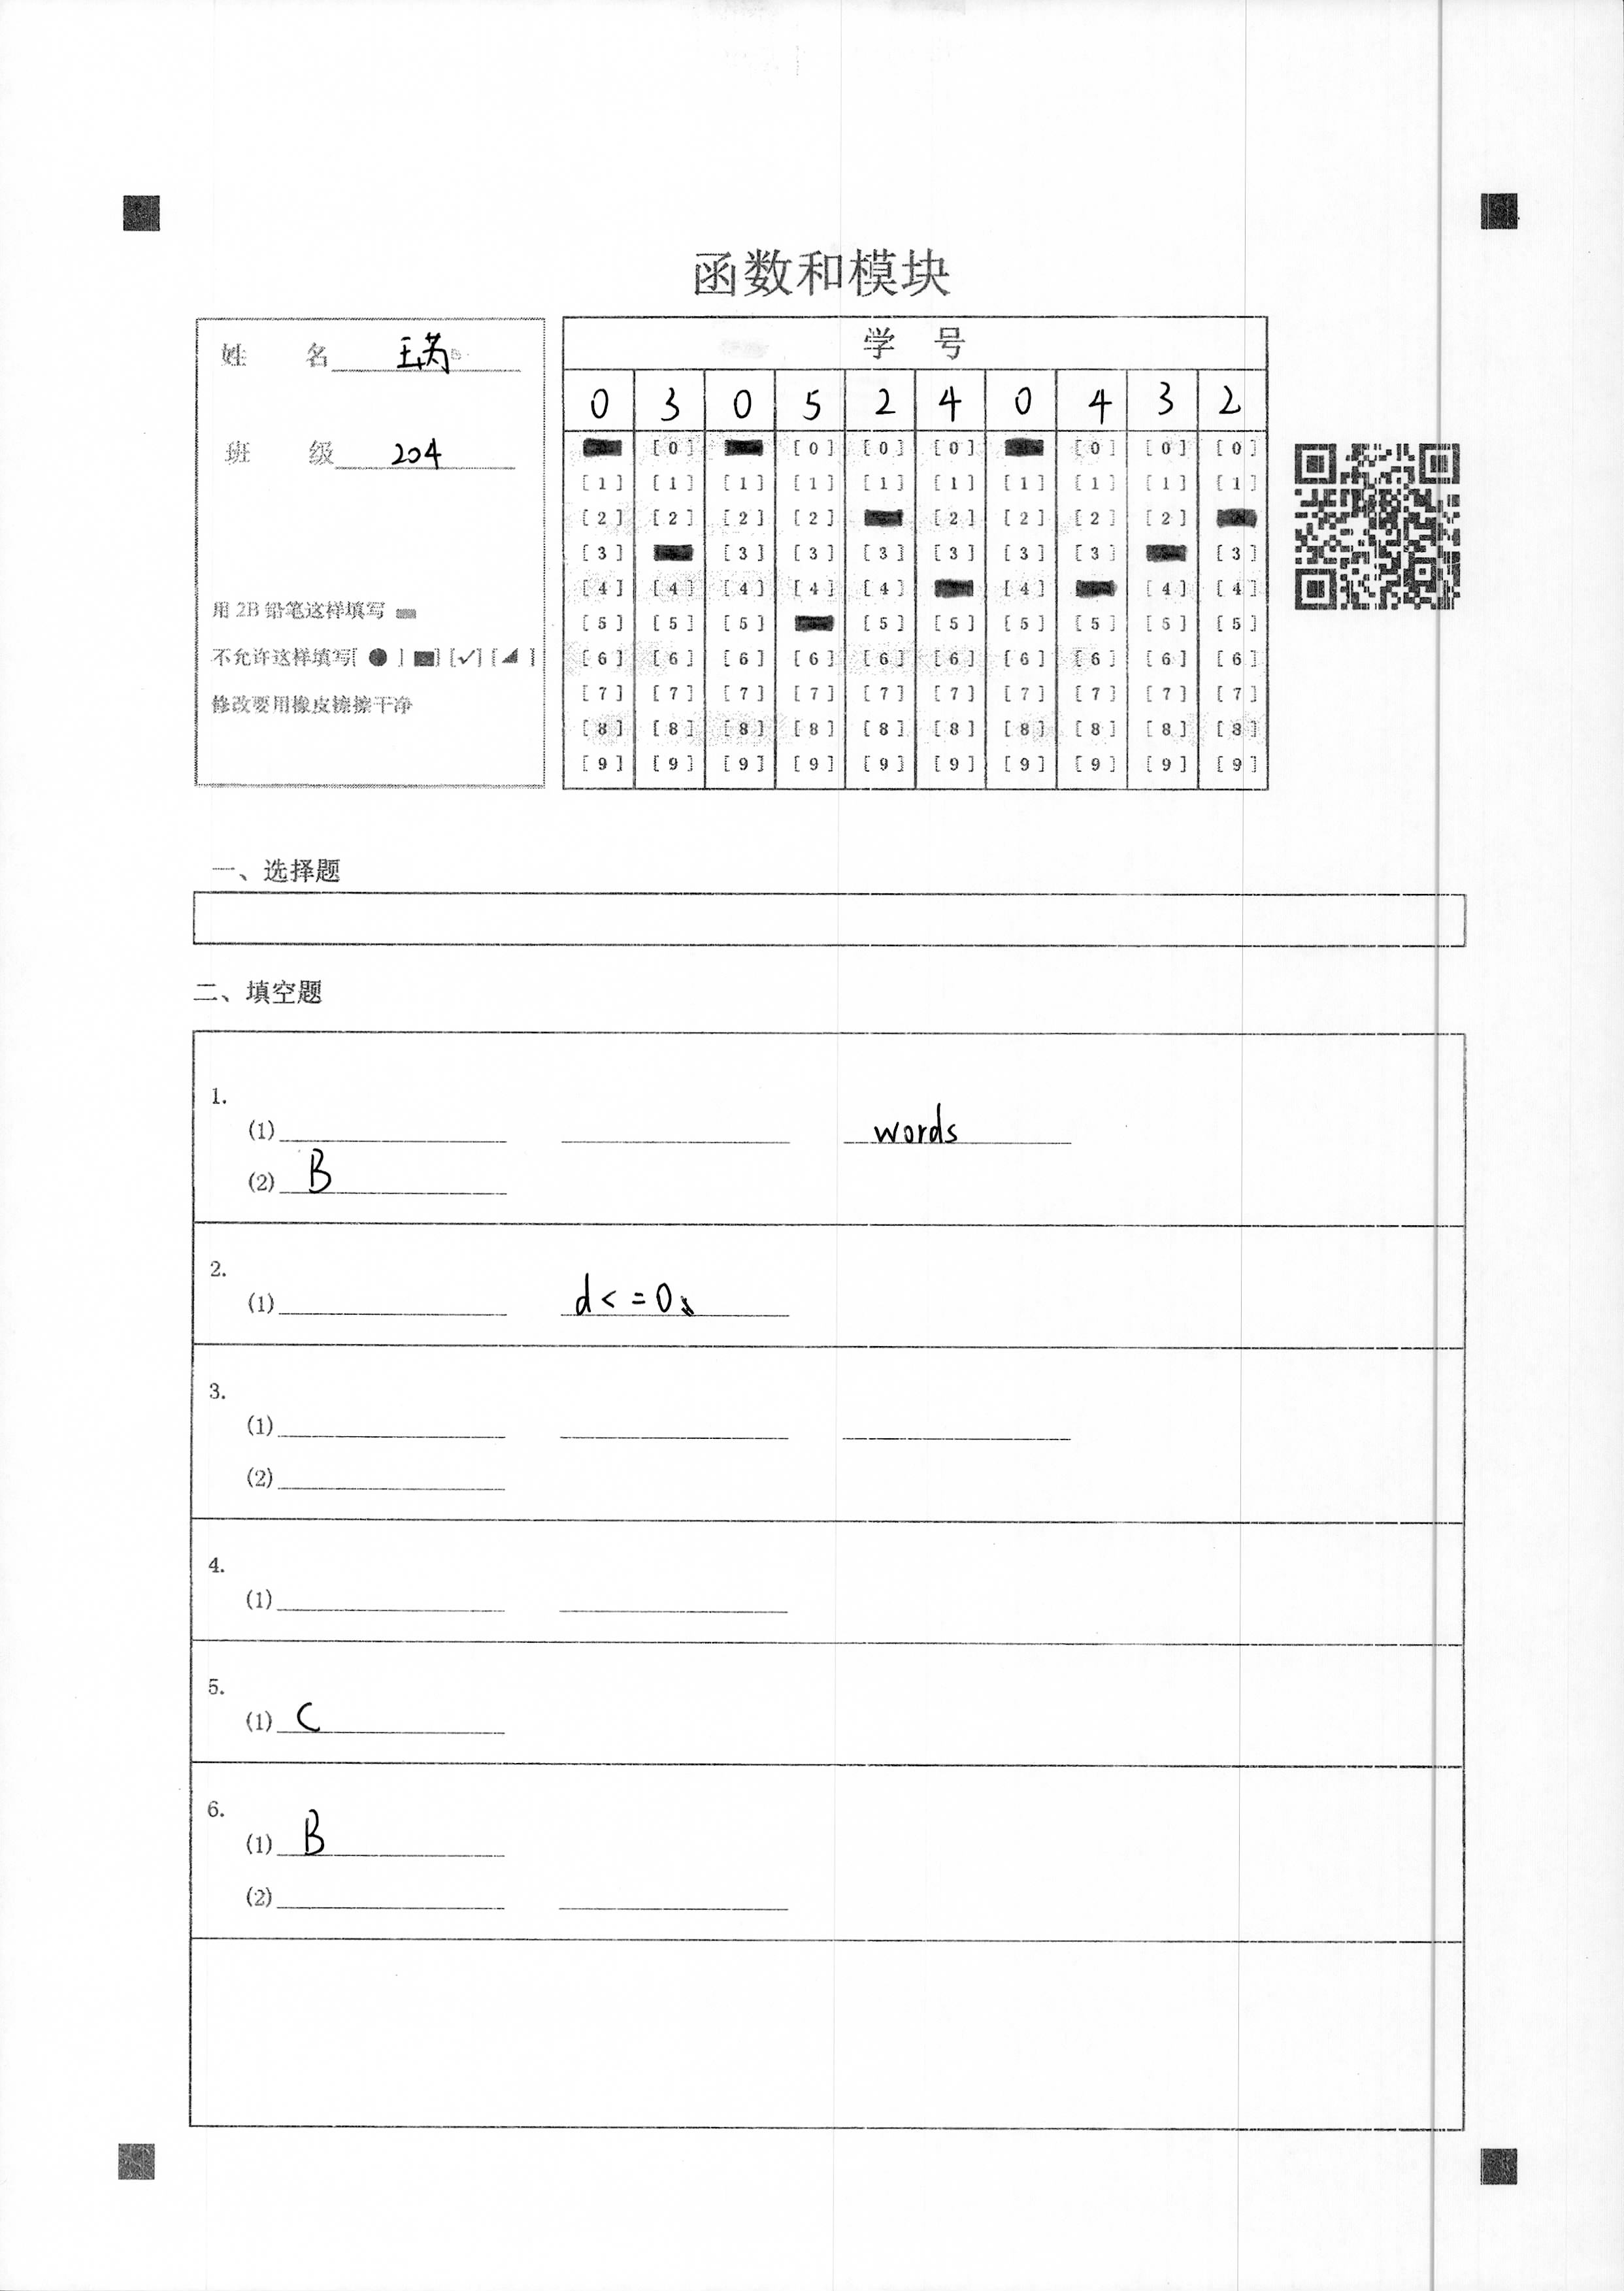 函数和模块
姓 名 王芮
班 级 204
用 2B 铅笔这样填写
不允许这样填写[ ● ] [■] [✓] [◢ ]
修改要用橡皮擦擦干净
学 号
0 3 0 5 2 4 0 4 3 2
[0] [0] [0] [0] [0] [0] [0]
[1] [1] [1] [1] [1] [1] [1] [1] [1] [1]
[2] [2] [2] [2] [2] [2] [2] [2]
[3] [3] [3] [3] [3] [3] [3] [3]
[4] [4] [4] [4] [4] [4] [4] [4]
[5] [5] [5] [5] [5] [5] [5] [5] [5]
[6] [6] [6] [6] [6] [6] [6] [6] [6] [6]
[7] [7] [7] [7] [7] [7] [7] [7] [7] [7]
[8] [8] [8] [8] [8] [8] [8] [8] [8] [8]
[9] [9] [9] [9] [9] [9] [9] [9] [9] [9]
一、选择题
二、填空题
1.
(1) words
(2) B
2.
(1) d<=0
3.
(1)
(2)
4.
(1)
5.
(1) C
6.
(1) B
(2)